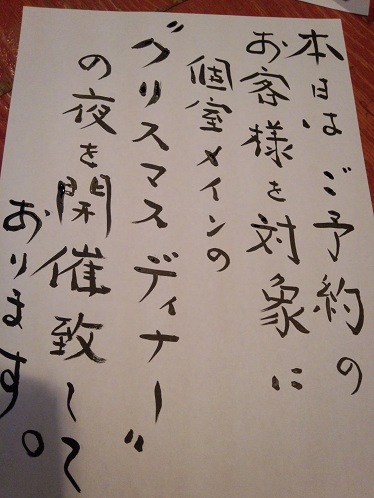 本日はご予約の
お客様を対象に
個室メインの
"グリスマスディナー"
の夜を開催致して
おります。